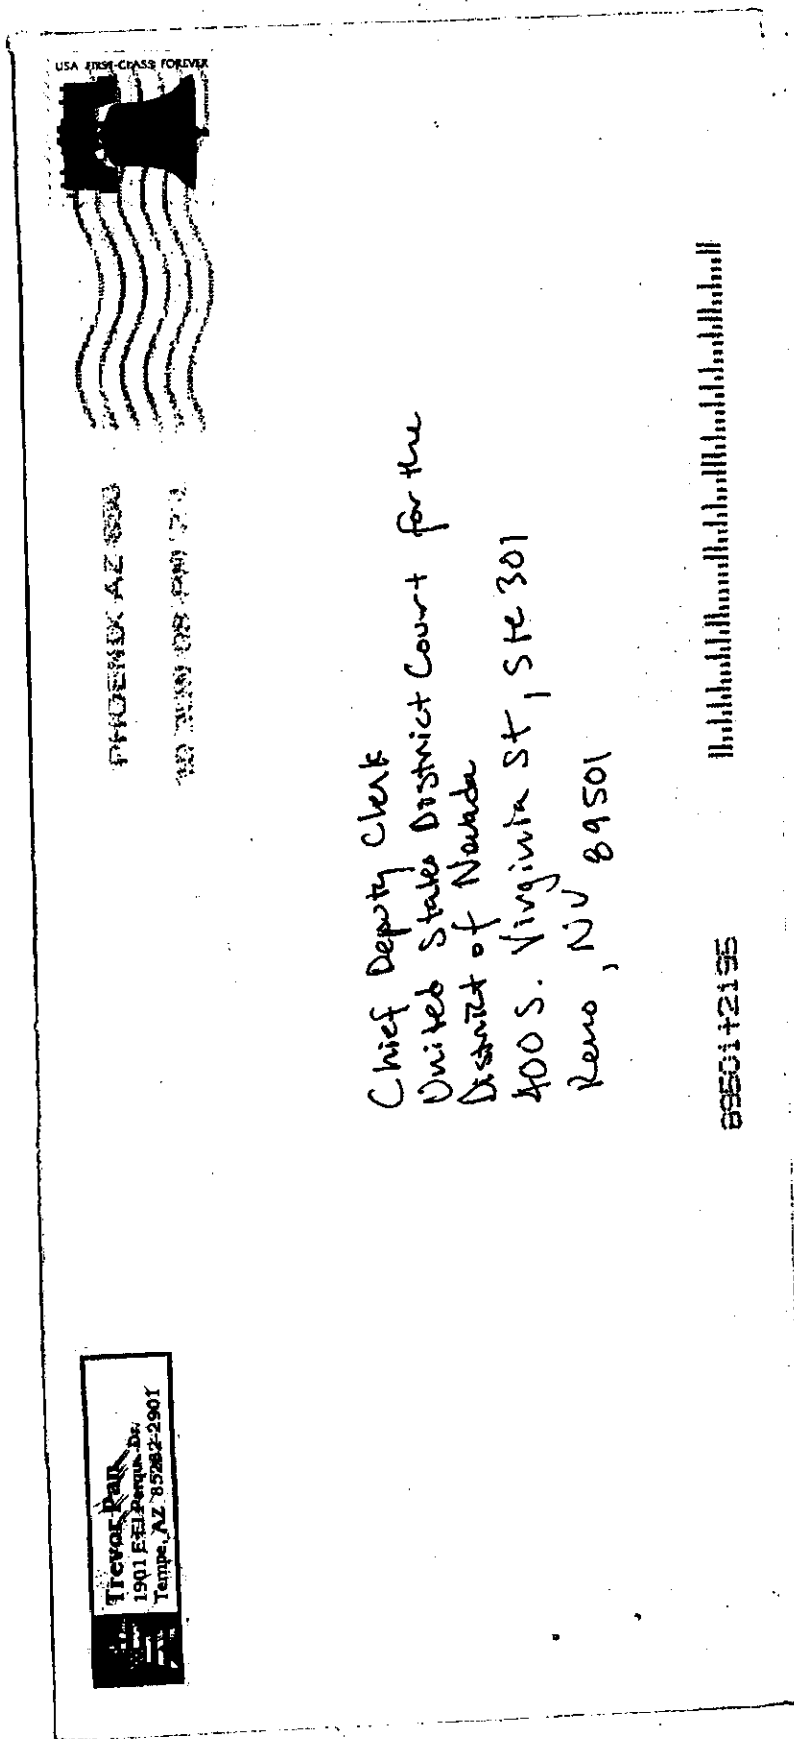 Trevor Pan
1901 E El Parque Dr
Tempe, AZ 85282-2901
USA FIRST-CLASS FOREVER
PHOENIX AZ
Chief Deputy Clerk
United States District Court for the
District of Nevada
400 S. Virginia St, Ste 301
Reno, NV 89501
89501+2195